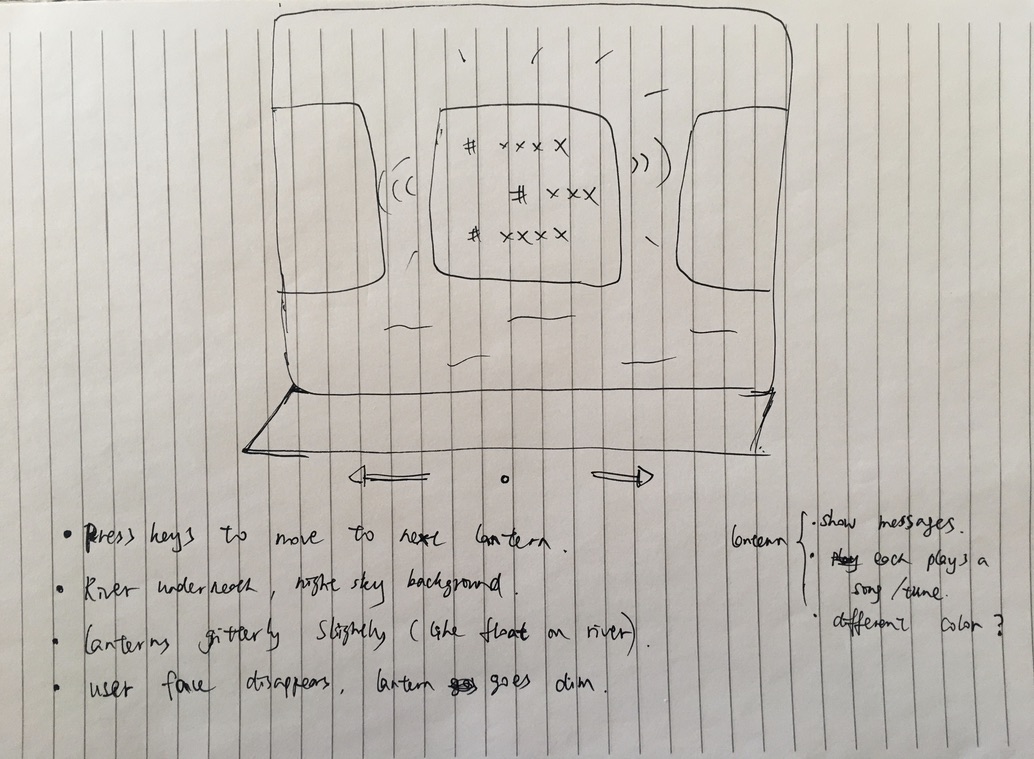 # xxxx
# xxx
# xxxx
• Press keys to move to next lantern.
• River underneath, night sky background.
• lanterns gitterly slightly (like float on river).
• user face disappears, lantern goes dim.
lantern { · show messages.
· each plays a
song / tune.
· different color?